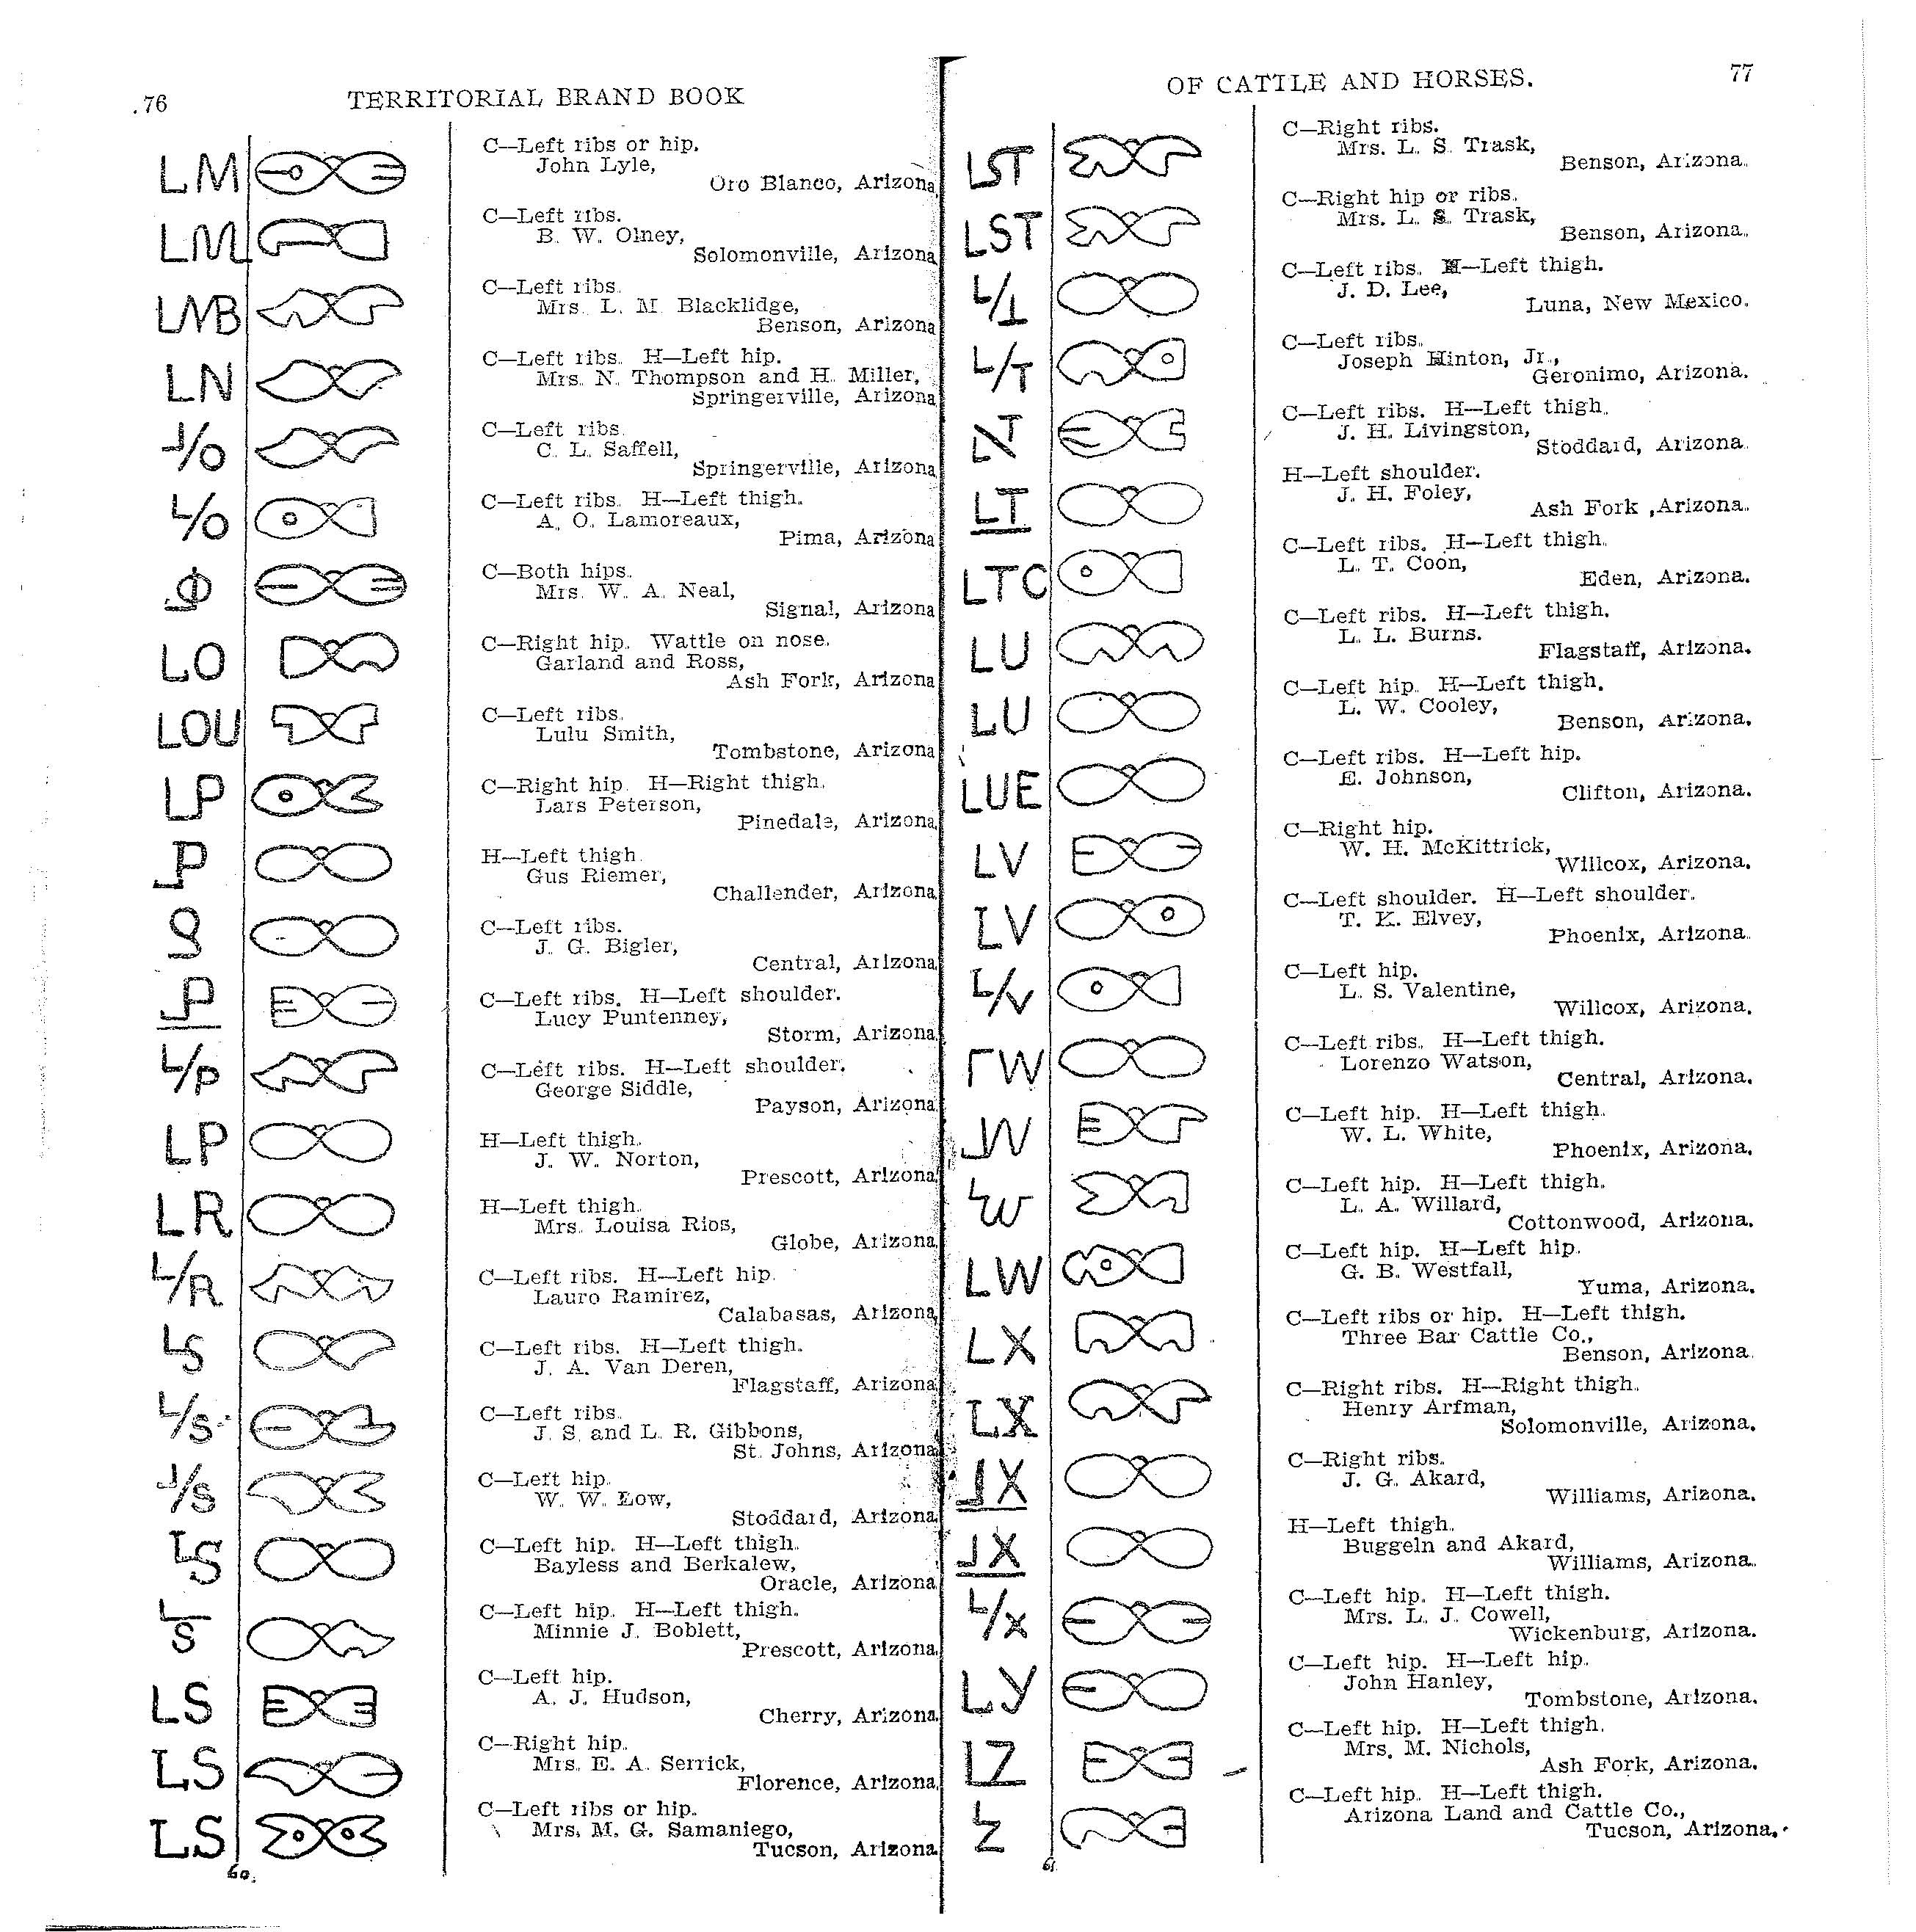 .76
TERRITORIAL BRAND BOOK
LM
C—Left ribs or hip.
John Lyle,
Oro Blanco, Arizona
LM
C—Left ribs.
B. W. Olney,
Solomonville, Arizona
LMB
C—Left ribs.
Mrs. L. M. Blacklidge,
Benson, Arizona
LN
C—Left ribs. H—Left hip.
Mrs. N. Thompson and H. Miller,
Springerville, Arizona
C—Left ribs.
C. L. Saffell,
Springerville, Arizona
L/O
C—Left ribs. H—Left thigh.
A. O. Lamoreaux,
Pima, Arizona
C—Both hips.
Mrs. W. A. Neal,
Signal, Arizona
LO
C—Right hip. Wattle on nose.
Garland and Ross,
Ash Fork, Arizona
LOU
C—Left ribs.
Lulu Smith,
Tombstone, Arizona
LP
C—Right hip. H—Right thigh.
Lars Peterson,
Pinedale, Arizona.
H—Left thigh.
Gus Riemer,
Challender, Arizona
C—Left ribs.
J. G. Bigler,
Central, Arizona.
C—Left ribs. H—Left shoulder.
Lucy Puntenney,
Storm, Arizona.
L/P
C—Left ribs. H—Left shoulder.
George Siddle,
Payson, Arizona.
LP
H—Left thigh.
J. W. Norton,
Prescott, Arizona
LR
H—Left thigh.
Mrs. Louisa Rios,
Globe, Arizona.
L/R
C—Left ribs. H—Left hip.
Lauro Ramirez,
Calabasas, Arizona.
LS
C—Left ribs. H—Left thigh.
J. A. Van Deren,
Flagstaff, Arizona.
L/S
C—Left ribs.
J. S. and L. R. Gibbons,
St. Johns, Arizona.
C—Left hip.
W. W. Low,
Stoddard, Arizona.
LS
C—Left hip. H—Left thigh.
Bayless and Berkalew,
Oracle, Arizona.
L
S
C—Left hip. H—Left thigh.
Minnie J. Boblett,
Prescott, Arizona.
LS
C—Left hip.
A. J. Hudson,
Cherry, Arizona.
LS
C—Right hip.
Mrs. E. A. Serrick,
Florence, Arizona.
LS
C—Left ribs or hip.
Mrs. M. G. Samaniego,
Tucson, Arizona.
60.
OF CATTLE AND HORSES.
77
LST
C—Right ribs.
Mrs. L. S. Trask,
Benson, Arizona.
LST
C—Right hip or ribs.
Mrs. L. S. Trask,
Benson, Arizona.
C—Left ribs. H—Left thigh.
J. D. Lee,
Luna, New Mexico.
L/T
C—Left ribs.
Joseph Hinton, Jr.,
Geronimo, Arizona.
C—Left ribs. H—Left thigh.
J. H. Livingston,
Stoddard, Arizona.
LT
H—Left shoulder.
J. H. Foley,
Ash Fork ,Arizona.
LTC
C—Left ribs. H—Left thigh.
L. T. Coon,
Eden, Arizona.
LU
C—Left ribs. H—Left thigh.
L. L. Burns.
Flagstaff, Arizona.
LU
C—Left hip. H—Left thigh.
L. W. Cooley,
Benson, Arizona.
LUE
C—Left ribs. H—Left hip.
E. Johnson,
Clifton, Arizona.
LV
C—Right hip.
W. H. McKittrick,
Willcox, Arizona.
LV
C—Left shoulder. H—Left shoulder.
T. K. Elvey,
Phoenix, Arizona.
L/V
C—Left hip.
L. S. Valentine,
Willcox, Arizona.
C—Left ribs. H—Left thigh.
Lorenzo Watson,
Central, Arizona.
C—Left hip. H—Left thigh.
W. L. White,
Phoenix, Arizona.
LW
C—Left hip. H—Left thigh.
L. A. Willard,
Cottonwood, Arizona.
LW
C—Left hip. H—Left hip.
G. B. Westfall,
Yuma, Arizona.
LX
C—Left ribs or hip. H—Left thigh.
Three Bar Cattle Co.,
Benson, Arizona.
LX
C—Right ribs. H—Right thigh.
Henry Arfman,
Solomonville, Arizona.
C—Right ribs.
J. G. Akard,
Williams, Arizona.
H—Left thigh.
Buggeln and Akard,
Williams, Arizona.
L/X
C—Left hip. H—Left thigh.
Mrs. L. J. Cowell,
Wickenburg, Arizona.
LY
C—Left hip. H—Left hip.
John Hanley,
Tombstone, Arizona.
LZ
C—Left hip. H—Left thigh.
Mrs. M. Nichols,
Ash Fork, Arizona.
L
Z
C—Left hip. H—Left thigh.
Arizona Land and Cattle Co.,
Tucson, Arizona.
61